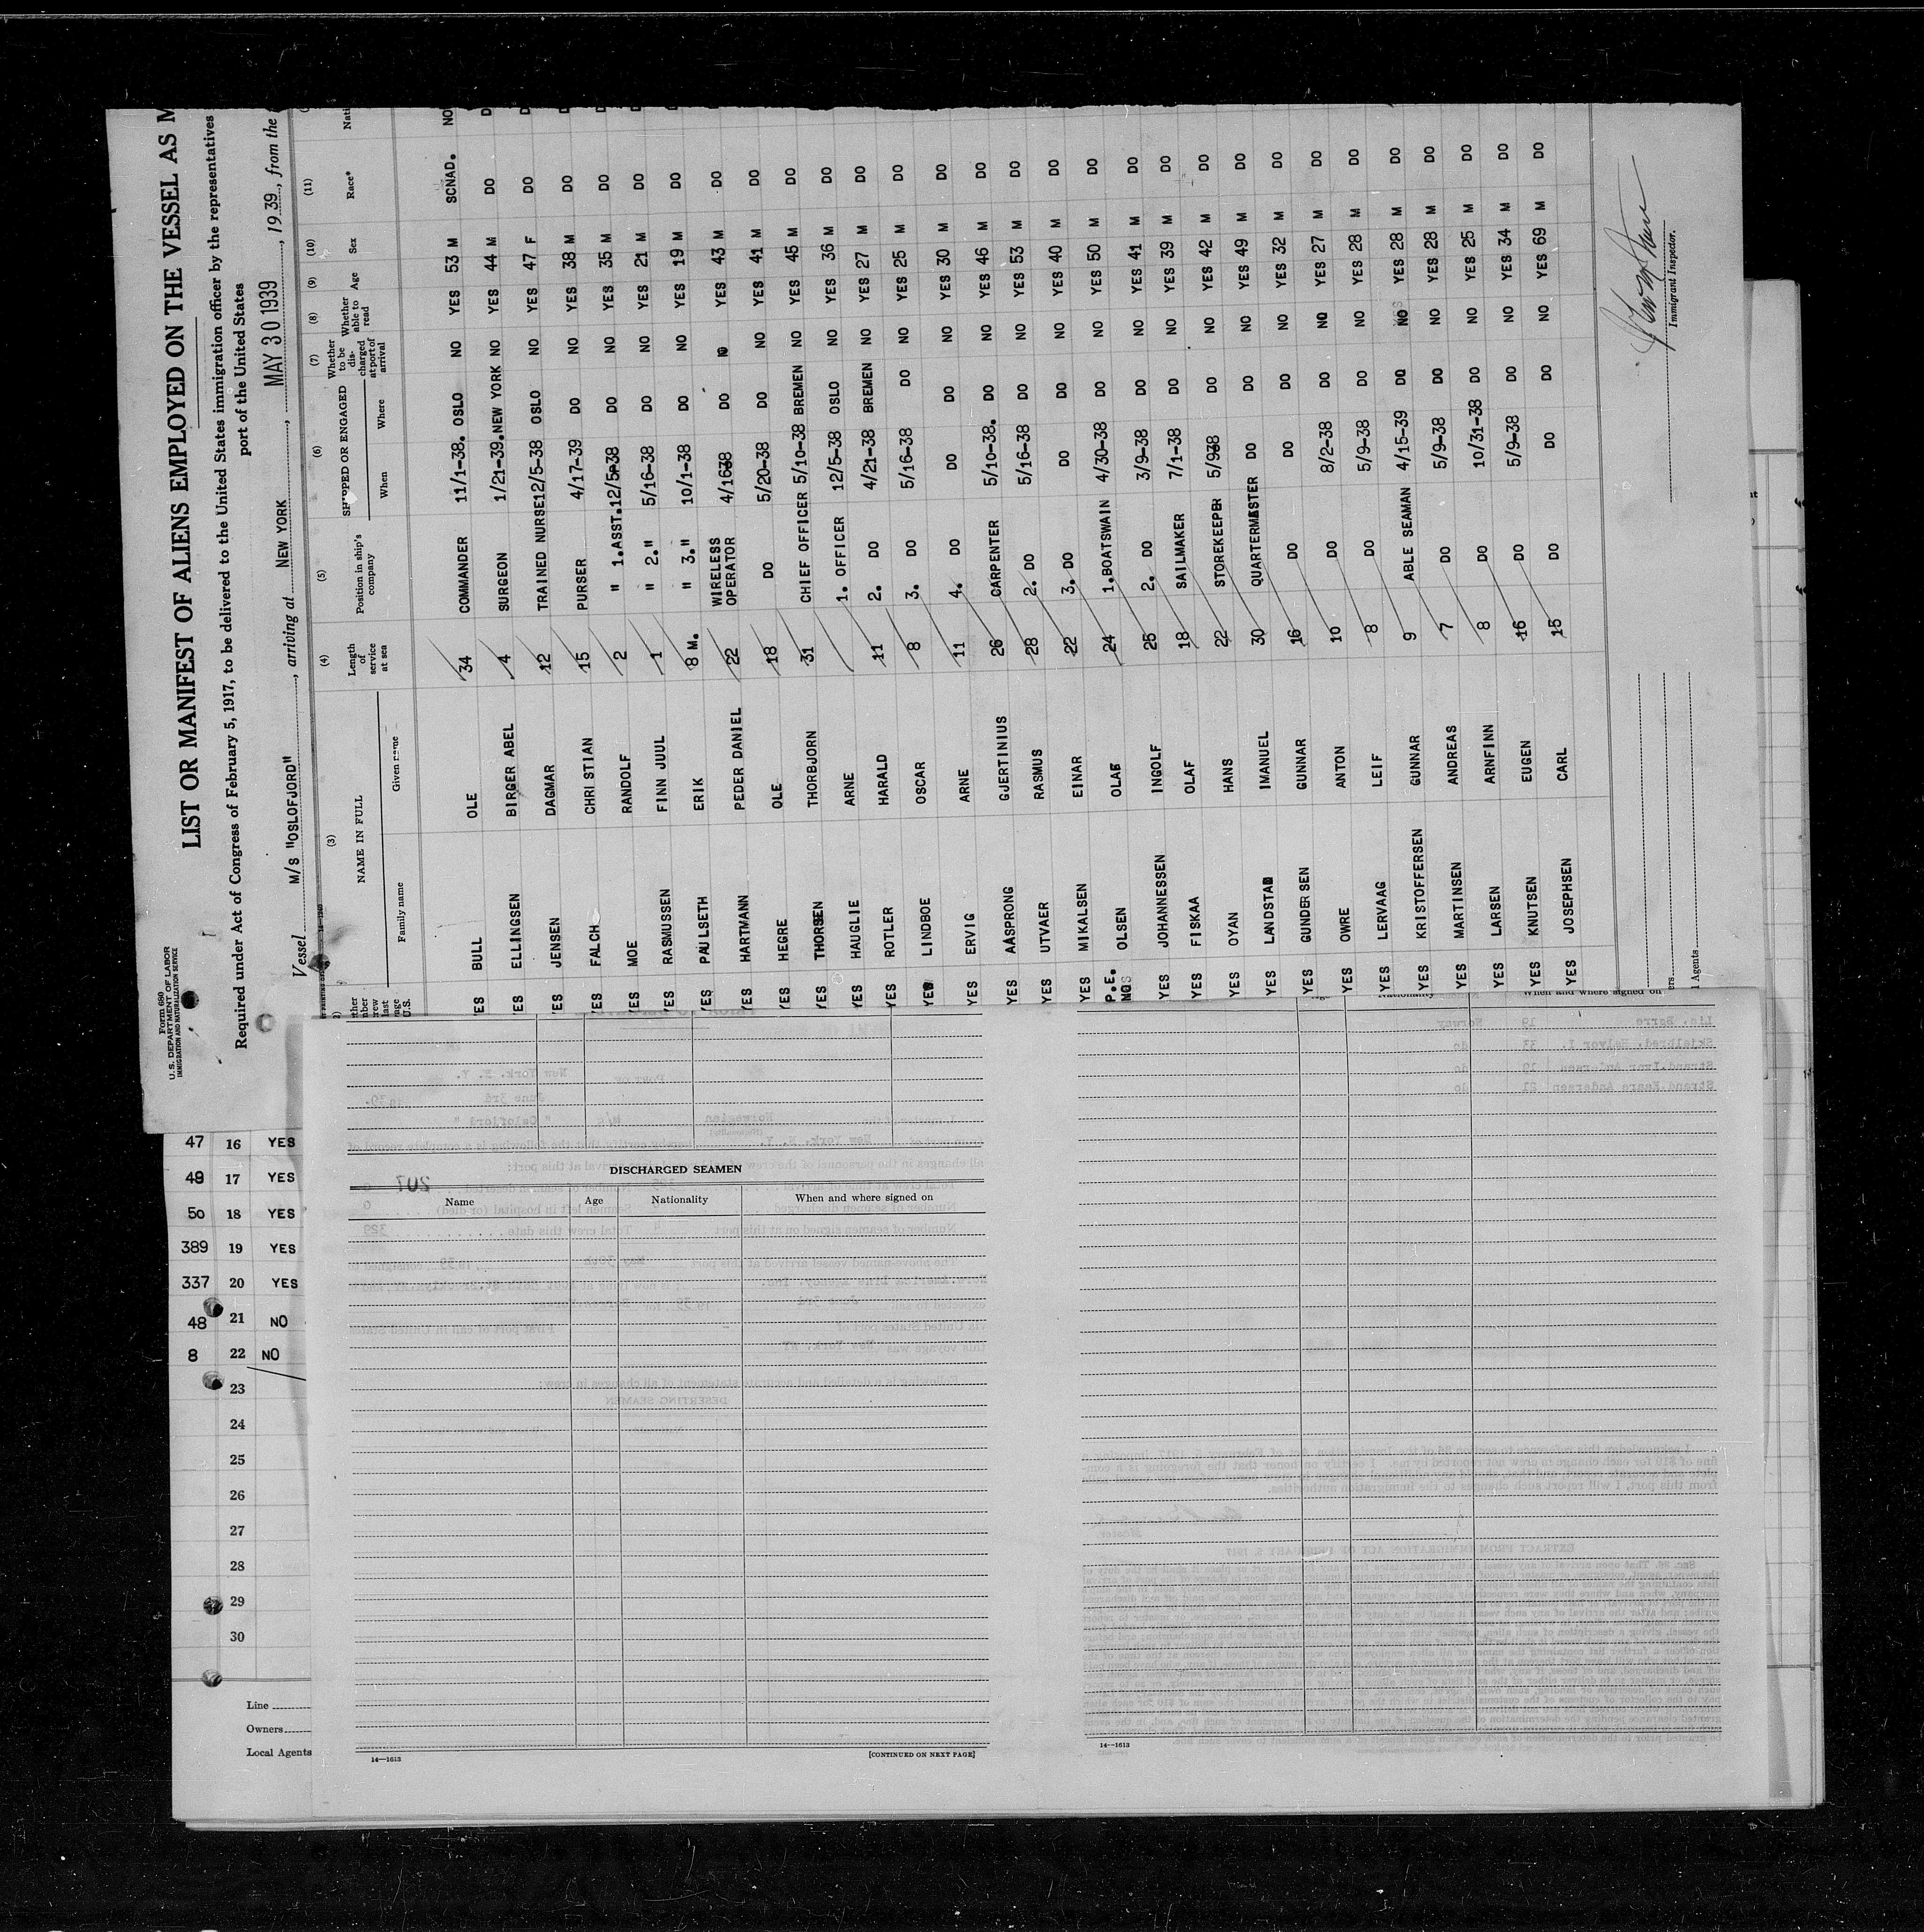 Form 680
U. S. DEPARTMENT OF LABOR
IMMIGRATION AND NATURALIZATION SERVICE
LIST OR MANIFEST OF ALIENS EMPLOYED ON THE VESSEL AS M
Required under Act of Congress of February 5, 1917, to be delivered to the United States immigration officer by the representatives
port of the United States
Vessel M/S "OSLOFJORD", arriving at NEW YORK, MAY 30 1939, 1939, from the
(3) (4) (5) (6) (7) (8) (9) (10) (11)
NAME IN FULL
Family name Given name
Length of service at sea
Position in ship's company
SHIPPED OR ENGAGED
When Where
Whether to be discharged at port of arrival
Whether able to read
Age Sex Race* Nati
ES BULL OLE 34 COMMANDER 11/1-38. OSLO NO YES 53 M SCNAD. NO
ES ELLINGSEN BIRGER ABEL 4 SURGEON 1/21-39. NEW YORK NO YES 44 M DO D
ES JENSEN DAGMAR 12 TRAINED NURSE 12/5-38 OSLO NO YES 47 F DO D
ES FALCH CHRISTIAN 15 PURSER 4/17-39 DO NO YES 38 M DO D
ES MOE RANDOLF 2 " 1.ASST. 12/5-38 DO NO YES 35 M DO D
YES RASMUSSEN FINN JUUL 1 " 2." 5/16-38 DO NO YES 21 M DO D
YES PAULSETH ERIK 8 M. " 3." 10/1-38 DO NO YES 19 M DO D
YES HARTMANN PEDER DANIEL 22 WIRELESS OPERATOR 4/1638 DO YES 43 M DO
YES HEGRE OLE 18 DO 5/20-38 DO NO YES 41 M DO
YES THORSEN THORBJORN 31 CHIEF OFFICER 5/10-38 BREMEN NO YES 45 M DO
YES HAUGLIE ARNE 1. OFFICER 12/5-38 OSLO NO YES 36 M DO
YES ROTLER HARALD 11 2. DO 4/21-38 BREMEN NO YES 27 M DO
YES LINDBOE OSCAR 8 3. DO 5/16-38 DO NO YES 25 M DO
YES ERVIG ARNE 11 4. DO DO DO NO YES 30 M DO
YES AASPRONG GJERTINIUS 26 CARPENTER 5/10-38. DO NO YES 46 M DO
YES UTVAER RASMUS 28 2. DO 5/16-38 DO NO YES 53 M DO
YES MIKALSEN EINAR 22 3. DO DO DO NO YES 40 M DO
P.E. NO OLSEN OLAF 24 1.BOATSWAIN 4/30-38 DO NO YES 50 M DO
YES JOHANNESSEN INGOLF 25 2. DO 3/9-38 DO NO YES 41 M DO
YES FISKAA OLAF 18 SAILMAKER 7/1-38 DO NO YES 39 M DO
YES OYAN HANS 22 STOREKEEPER 5/9-38 DO NO YES 42 M DO
YES LANDSTAD IMANUEL 30 QUARTERMASTER DO DO NO YES 49 M DO
YES GUNDERSEN GUNNAR 16 DO DO DO NO YES 32 M DO
YES OWRE ANTON 10 DO 8/2-38 DO NO YES 27 M DO
YES LERVAAG LEIF 8 DO 5/9-38 DO NO YES 28 M DO
YES KRISTOFFERSEN GUNNAR 9 ABLE SEAMAN 4/15-39 DO NO YES 28 M DO
YES MARTINSEN ANDREAS 7 DO 5/9-38 DO NO YES 28 M DO
YES LARSEN ARNFINN 8 DO 10/31-38 DO NO YES 25 M DO
YES KNUTSEN EUGEN 16 DO 5/9-38 DO NO YES 34 M DO
YES JOSEPHSEN CARL 15 DO DO DO NO YES 69 M DO
Immigrant Inspector.
47 16 YES
49 17 YES
50 18 YES
389 19 YES
337 20 YES
48 21 NO
8 22 NO
23
24
25
26
27
28
29
30
Line
Owners
Local Agents
DISCHARGED SEAMEN
Name Age Nationality When and where signed on
14—1613 [CONTINUED ON NEXT PAGE]
When and where signed on
14—1613